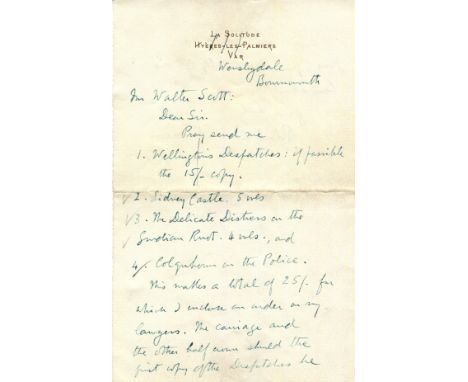 La Solitude
Hyères-les-Palmiers
Var
Bournemouth
Mr Walter Scott:
Dear Sir.
Pray send me
1. Wellington's Despatches: if possible
the 15/- copy.
√ 2. Sidney Castle. 5 vols
√ 3. The Delicate Distress
4 vols., and
4/. Colquhoun on the Police.
This makes a total of 25/. for
which I inclose an order on my
lawyers. The carriage and
the other half crown should the
first copy of the Despatches be